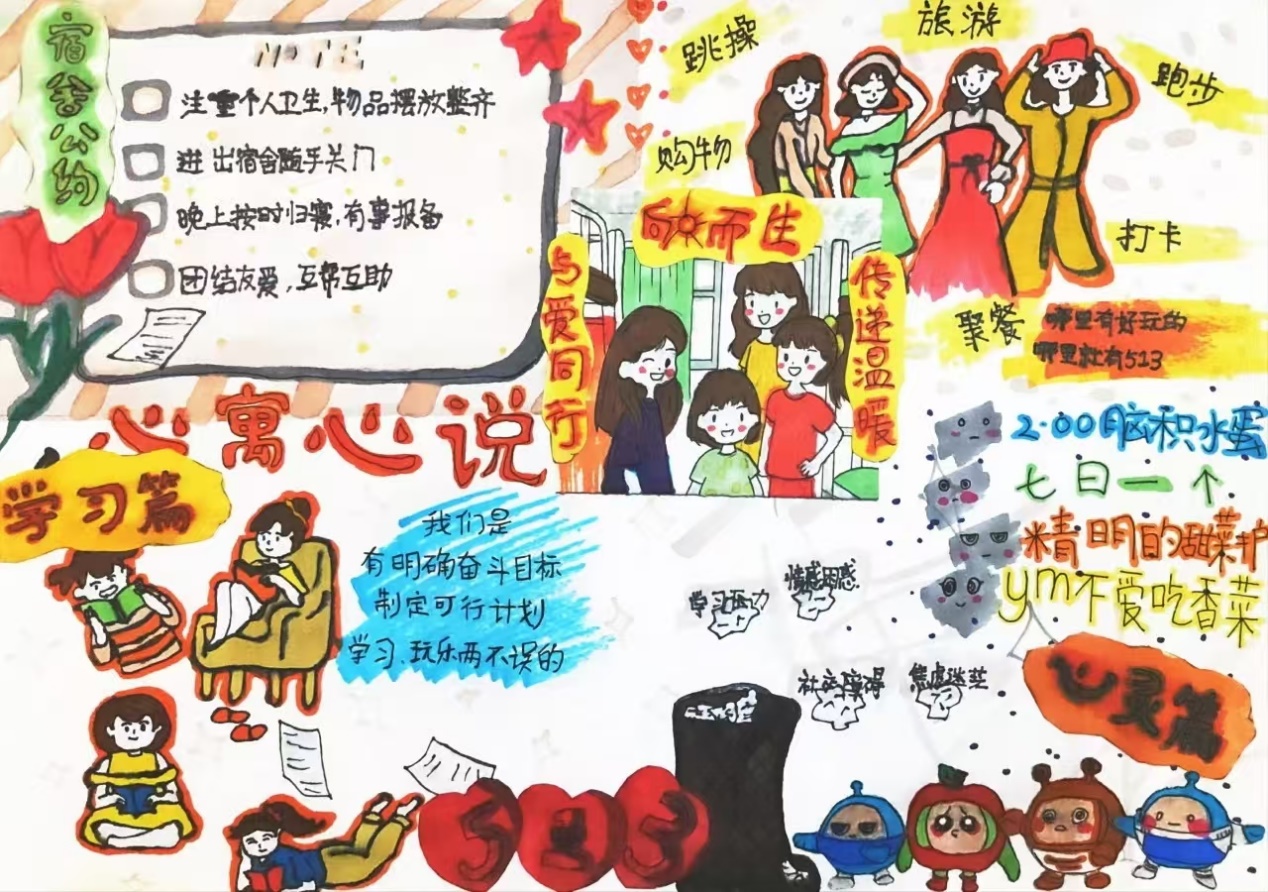 宿舍公约
NOTE
注重个人卫生,物品摆放整齐
进出宿舍随手关门
晚上按时归寝,有事报备
团结友爱,互帮互助
跳操
旅游
跑步
购物
打卡
聚餐
哪里有好玩的
哪里就有513
向而生
与爱同行
传递温暖
心寓心说
学习篇
我们是
有明确奋斗目标
制定可行计划
学习、玩乐两不误的
2·00脑积水蛋
七日一个
精明的甜菜护
ym不爱吃香菜
学习压力
情感困惑
社交障碍
焦虑迷茫
心灵篇
513